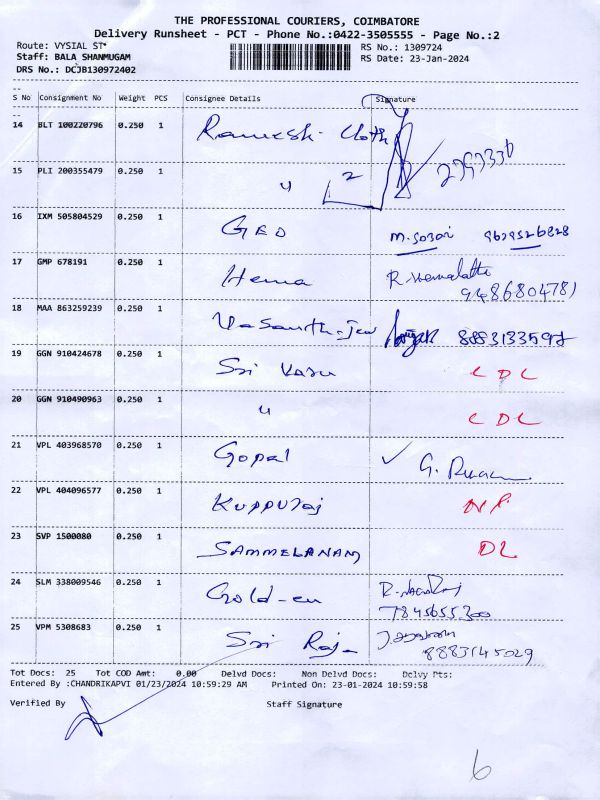 THE PROFESSIONAL COURIERS, COIMBATORE
Delivery Runsheet - PCT - Phone No.:0422-3505555 - Page No.:2
Route: VYSIAL ST* RS No.: 1309724
Staff: BALA SHANMUGAM RS Date: 23-Jan-2024
DRS No.: DCJB130972402
S No Consignment No Weight PCS Consignee Details Signature
14 BLT 100220796 0.250 1 Ramesh Cloth
15 PLI 200355479 0.250 1 " 2
16 IXM 505804529 0.250 1 GEO 9629526828
17 GMP 678191 0.250 1 Hema R. Hemalatha
9486804781
18 MAA 863259239 0.250 1 Vasanth-Jew
19 GGN 910424678 0.250 1 Sri Vasu CDL
20 GGN 910490963 0.250 1 " CDL
21 VPL 403968570 0.250 1 Gopal ✓
22 VPL 404096577 0.250 1 Kuppuraj
23 SVP 1500080 0.250 1 SAMMELANAM DL
24 SLM 338009546 0.250 1 Gold-en
7845655300
25 VPM 5308683 0.250 1 Sri Raja
8883145029
Tot Docs: 25 Tot COD Amt: 0.00 Delvd Docs: Non Delvd Docs: Delvy Pts:
Entered By :CHANDRIKAPVI 01/23/2024 10:59:29 AM Printed On: 23-01-2024 10:59:58
Verified By Staff Signature
6